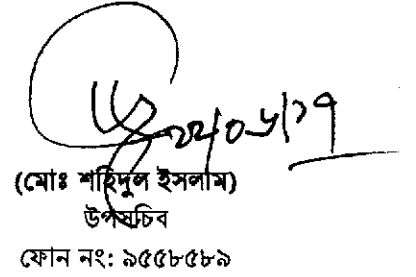 ২২/০৬/১৭
(মোঃ শহিদুল ইসলাম)
উপসচিব
ফোন নং: ৯৫৫৮৫৮৯